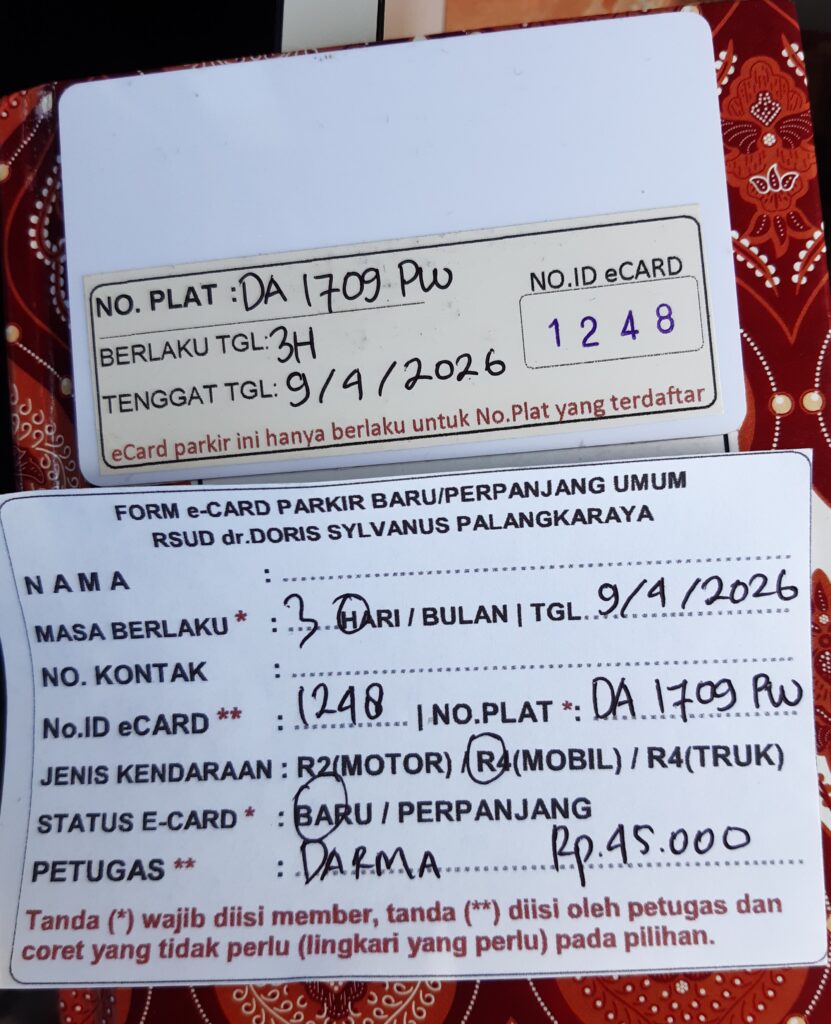 NO. PLAT : DA 1709 PW
NO.ID eCARD
1248
BERLAKU TGL: 3H
TENGGAT TGL: 9/4/2026
eCard parkir ini hanya berlaku untuk No.Plat yang terdaftar
FORM e-CARD PARKIR BARU/PERPANJANG UMUM
RSUD dr.DORIS SYLVANUS PALANGKARAYA
NAMA :
MASA BERLAKU * : 3 HARI / BULAN | TGL. 9/4/2026
NO. KONTAK :
No.ID eCARD ** : 1248 | NO.PLAT *: DA 1709 PW
JENIS KENDARAAN : R2(MOTOR) / R4(MOBIL) / R4(TRUK)
STATUS E-CARD * : BARU / PERPANJANG
PETUGAS ** : DARMA Rp.45.000
Tanda (*) wajib diisi member, tanda (**) diisi oleh petugas dan
coret yang tidak perlu (lingkari yang perlu) pada pilihan.